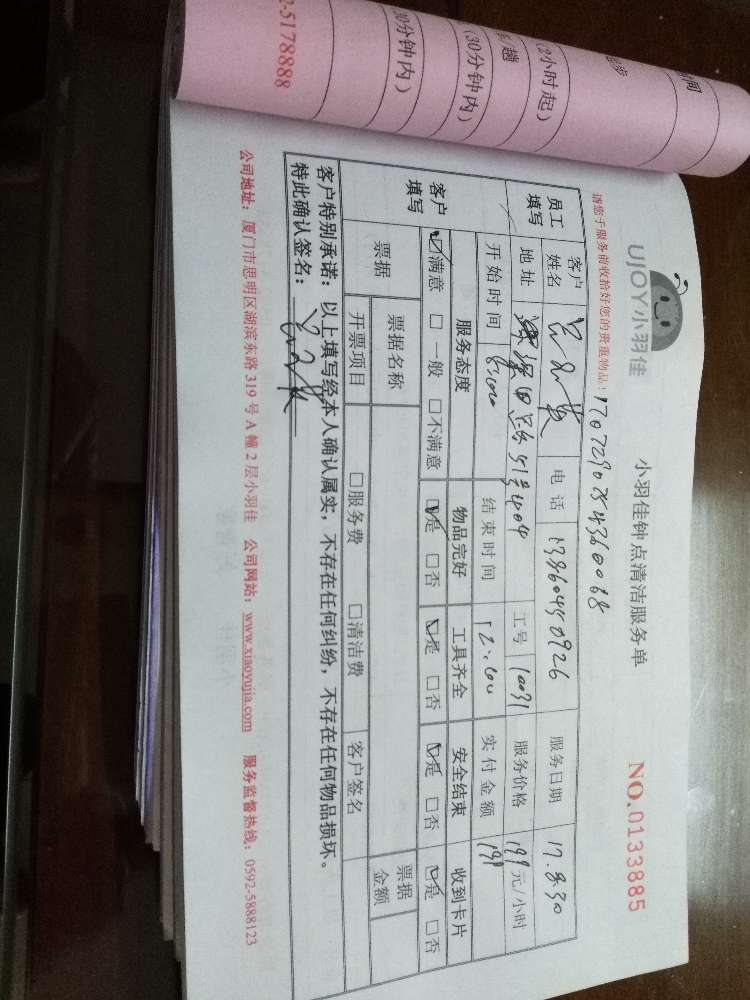 2-5178888
时间
(2小时起)
(30分钟内)
30分钟内)
UJOY小羽佳
小羽佳钟点清洁服务单
NO.0133885
请您于服务前收拾好您的贵重物品!
员工填写
客户姓名
电话
13860450926
服务日期
17.8.30
地址
工号
10031
服务价格
199元/小时
开始时间
8:00
结束时间
12:00
实付金额
199
客户填写
服务态度
物品完好
工具齐全
安全结束
收到卡片
☑满意 □一般 □不满意
☑是 □否
☑是 □否
☑是 □否
☑是 □否
票据
票据名称
票据金额
开票项目
□服务费 □清洁费
客户签名
客户特别承诺:以上填写经本人确认属实,不存在任何纠纷,不存在任何物品损坏。
特此确认签名:
公司地址:厦门市思明区湖滨东路319号A幢2层小羽佳 公司网站:www.xiaoyujia.com 服务监督热线:0592-5888123